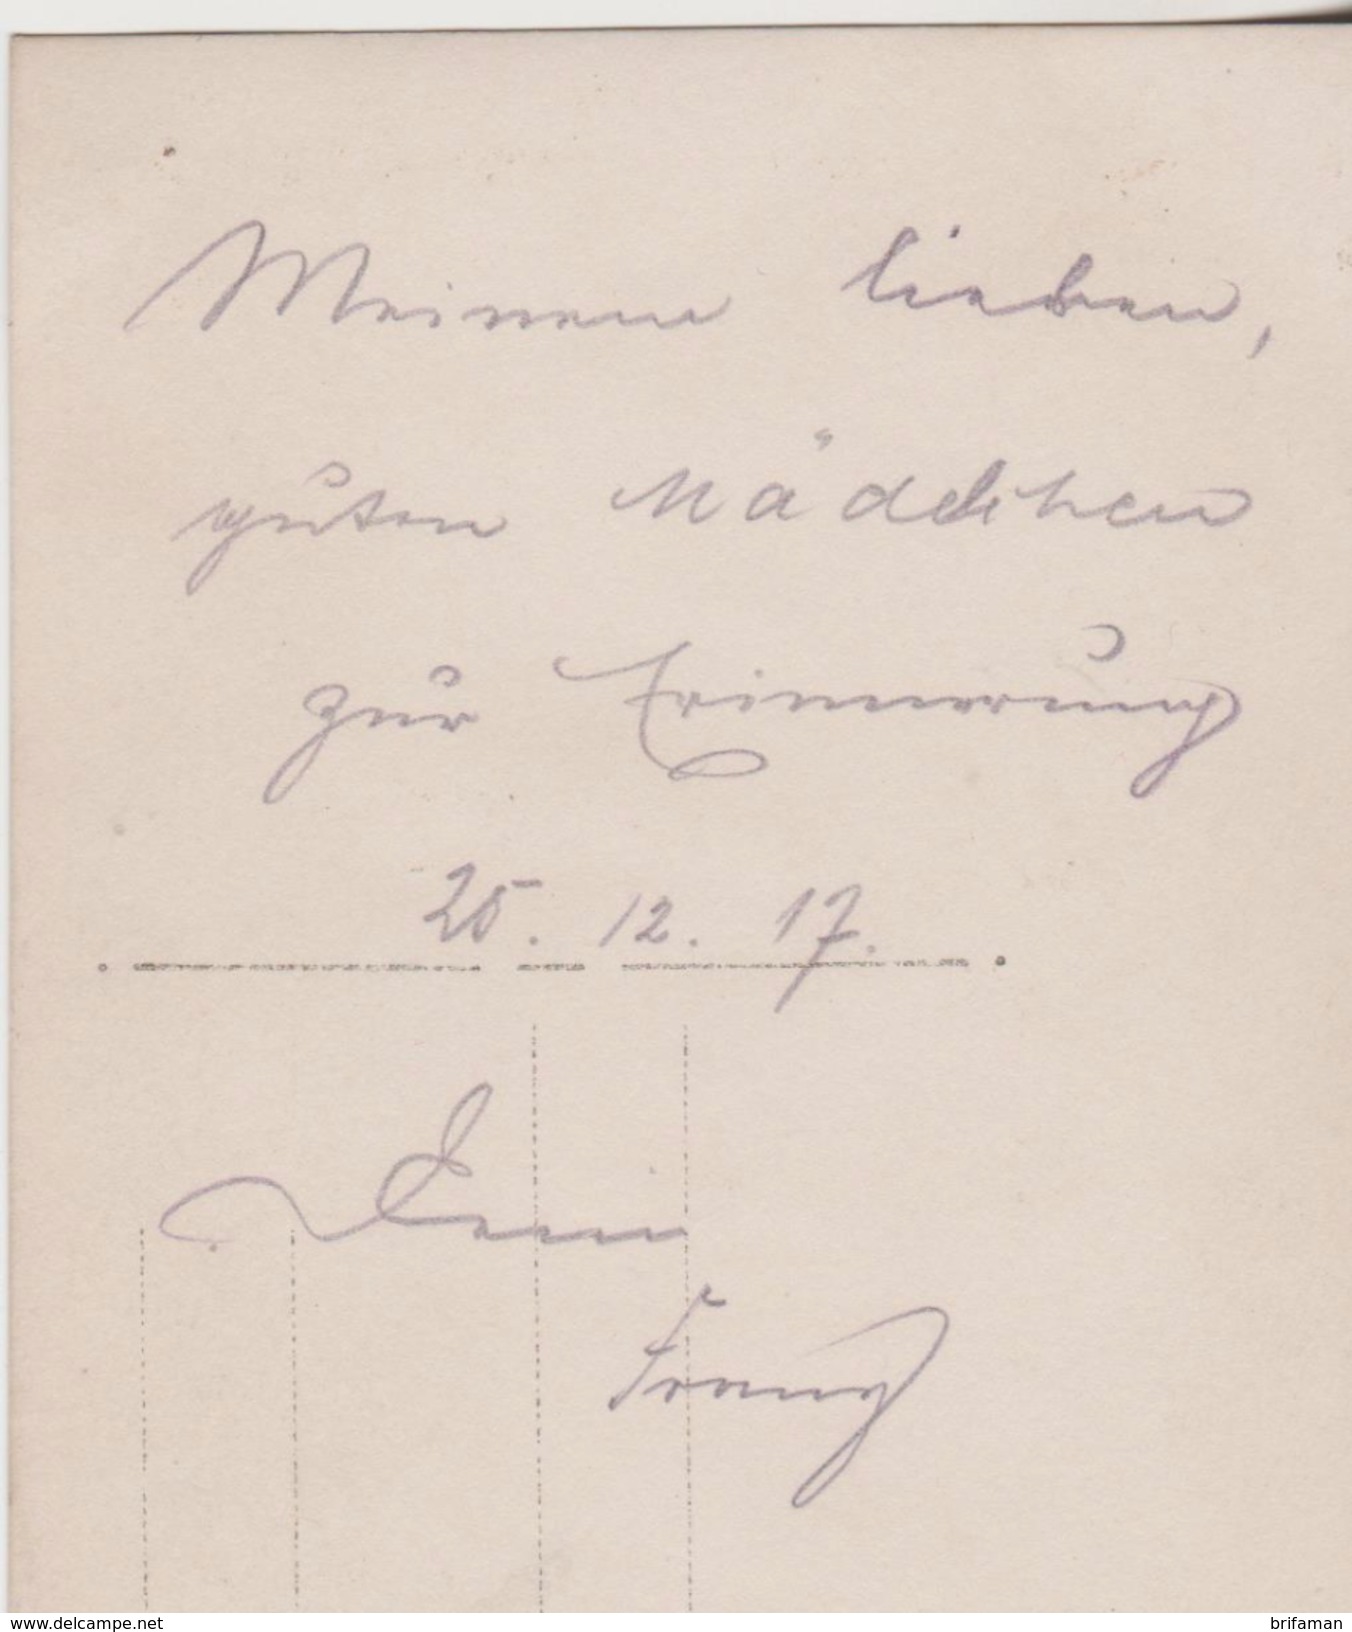 Meinem lieben,
guten Mädchen
zur Erinnerung
25. 12. 17.
Dein
Franz
delcampe.net
brifaman